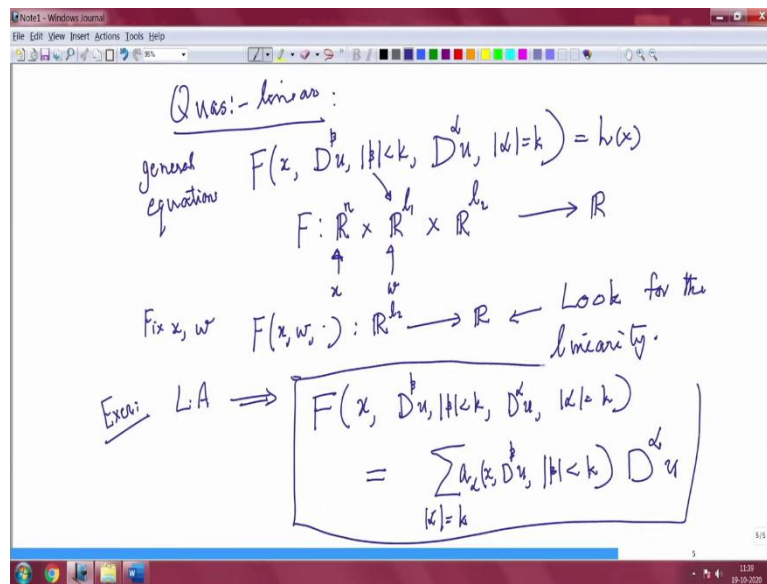 Note1 - Windows Journal
File Edit View Insert Actions Tools Help
Quasi-linear :
general equation F(x, D^β u, |β|<k, D^α u, |α|=k) = h(x)
F : ℝ^n × ℝ^{l_1} × ℝ^{l_2} ⟶ ℝ
↑ ↑
x w
Fix x, w F(x, w, ·) : ℝ^{l_2} ⟶ ℝ ← Look for the
linearity.
Exer: L.A ⟹ F(x, D^β u, |β|<k, D^α u, |α|=k)
= ∑ a_α(x, D^β u, |β|<k) D^α u
|α|=k
5/5
5
11:39
19-10-2020